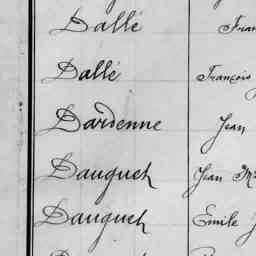 Dallé Fran
Dallé François
Dardenne Jean
Dauguet Jean M
Dauguet Emile J